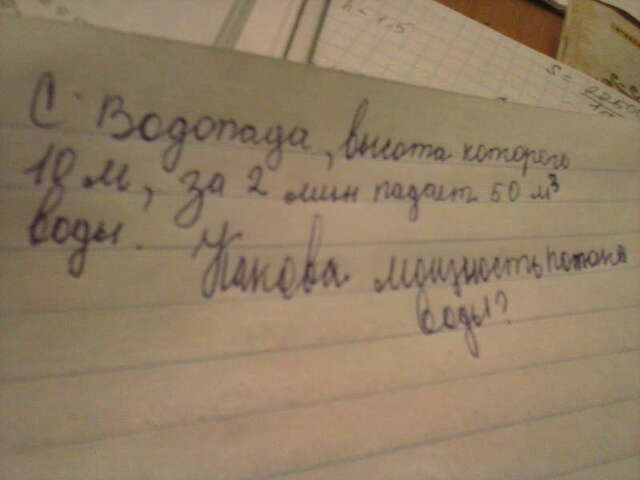 h = 1,5
S =
С Водопада, высота которого
10 м, за 2 мин падает 50 м³
воды. Какова мощность потока
воды?